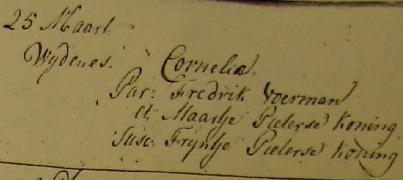 25 Maart
Wydenes. Cornelia.
Par: Fredrik Voerman
et Maartje Pieterse Koning.
Susc: Tryntje Pieterse Koning